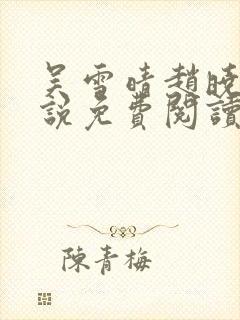 吴雪晴趙曉
說免費閱讀
陳青梅